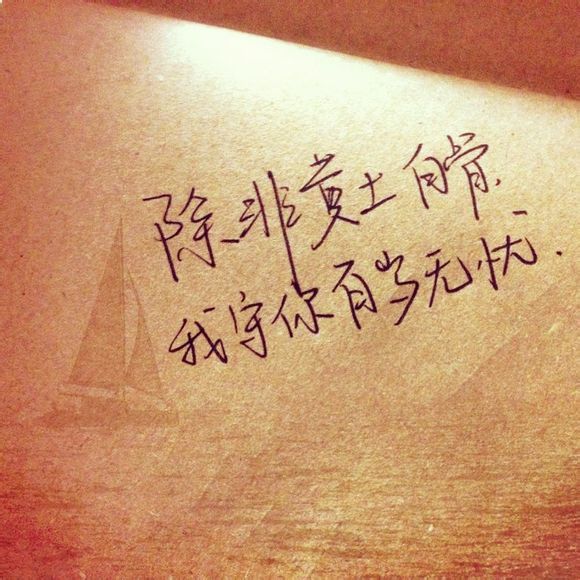 除非黄土白骨、
我守你百岁无忧.